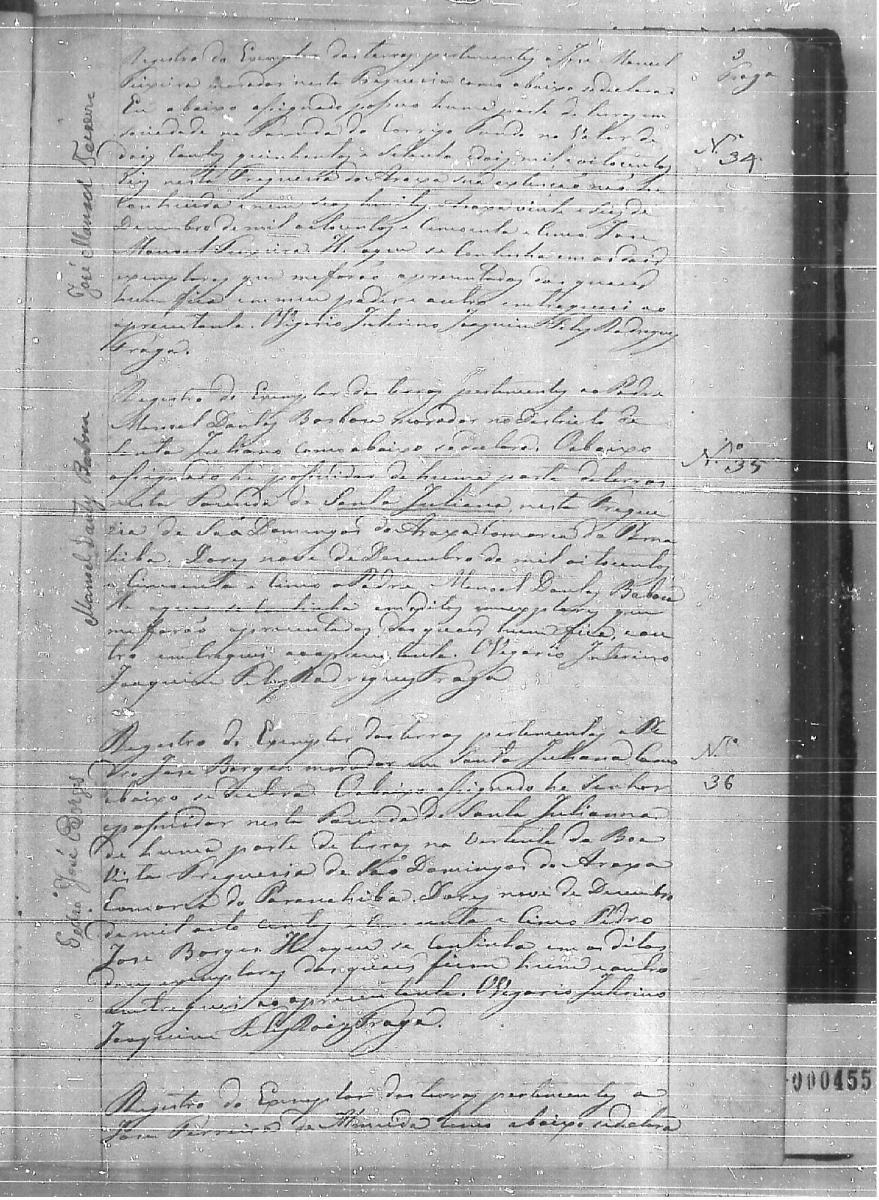 9
Fraga
José Manoel Teixeira
Nº 34
Registro do Exemplar das terras pertencentes a José Manoel
Teixeira morador nesta Freguesia como abaixo se declara.
Eu abaixo assignado possuo huma parte de terras em
sociedade na Fazenda do Corrigo Fundo no Valor de
dois Contos quinhentos e setenta dois mil e oitocentos
reis nesta Freguesia do Araxa sua extenção não he
Conhecida e nem seus limites. Araxa vinte e seis de
Dezembro de mil oitocentos e Cincoenta e Cinco José
Manoel Teixeira. He o que se Continha em os dois
exemplares que me forão apresentados dos quaes
hum fica em meu poder e outro entreguei ao
apresentante. O Vigario Interino Joaquim Felis Rodrigues
Fraga.
Manoel Dantas Barbosa
Nº 35
Registro do Exemplar das terras pertencentes ao Padre
Manoel Dantas Barbosa morador no Districto de
Santa Juliana como abaixo se declara. O abaixo
assignado he possuidor de huma parte de terras
nesta Fazenda de Santa Juliana, nesta Fregue
zia de São Domingos do Araxa Comarca da Parna
hiba. Dezenove de Dezembro de mil oitocentos
e Cincoenta e Cinco o Padre Manoel Dantas Barbosa
He o que se Continha em ditos exemplares que
me forão apresentados dos quaes hum fica, e ou
tro entreguei ao apresentante. O Vigario Interino
Joaquim Felis Rodrigues Fraga
Pedro José Borges
Nº 36
Registro do Exemplar das terras pertencentes a Pe
dro José Borges morador em Santa Juliana Como
abaixo se declara O abaixo assignado he Senhor
e possuidor nesta Fazenda de Santa Julianna
de huma parte de terras na Vertente da Boa
Vista Freguesia de São Domingos do Araxa
Comarca do Paranahiba. Dezenove de Dezembro
de mil oito centos e Cincoenta e Cinco Pedro
José Borges. He o que se Continha em os ditos
dous exemplares dos quaes ficou hum e outro
entreguei ao apresentante. O Vigario Interino
Joaquim Felis Roiz Fraga.
Registro do Exemplar das terras pertencentes a
José Ferreira de Almeida Como abaixo se declara
000455